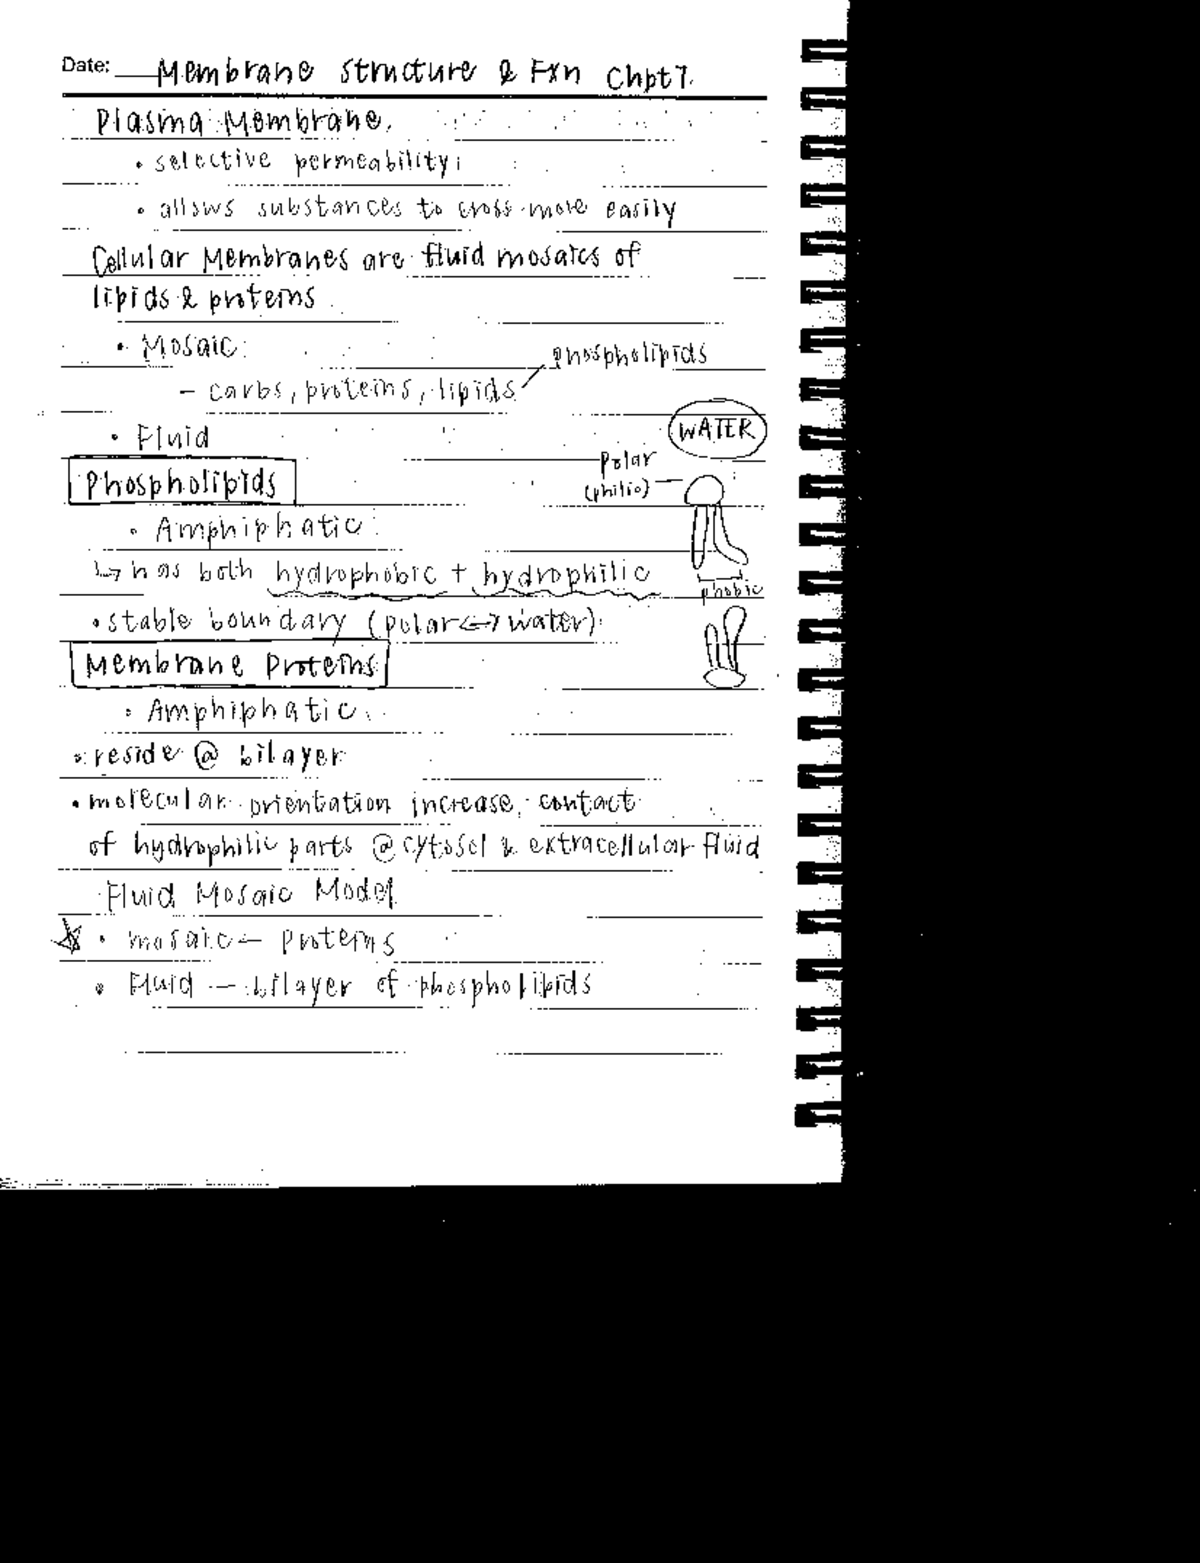 Date: Membrane structure & Fxn Chpt 7.
Plasma Membrane.
• selective permeability:
• allows substances to cross more easily
Cellular Membranes are fluid mosaics of
lipids & proteins
• Mosaic:
phospholipids
- carbs, proteins, lipids
• Fluid
WATER
Polar
(philic)
Phospholipids
• Amphiphatic:
↳ has both hydrophobic + hydrophilic
phobic
• stable boundary (polar <-> water)
Membrane Proteins
• Amphiphatic.
• reside @ bilayer
• molecular orientation increase, contact
of hydrophilic parts @ cytosol & extracellular fluid
Fluid Mosaic Model
☆ • mosaic - proteins
• Fluid - bilayer of phospholipids